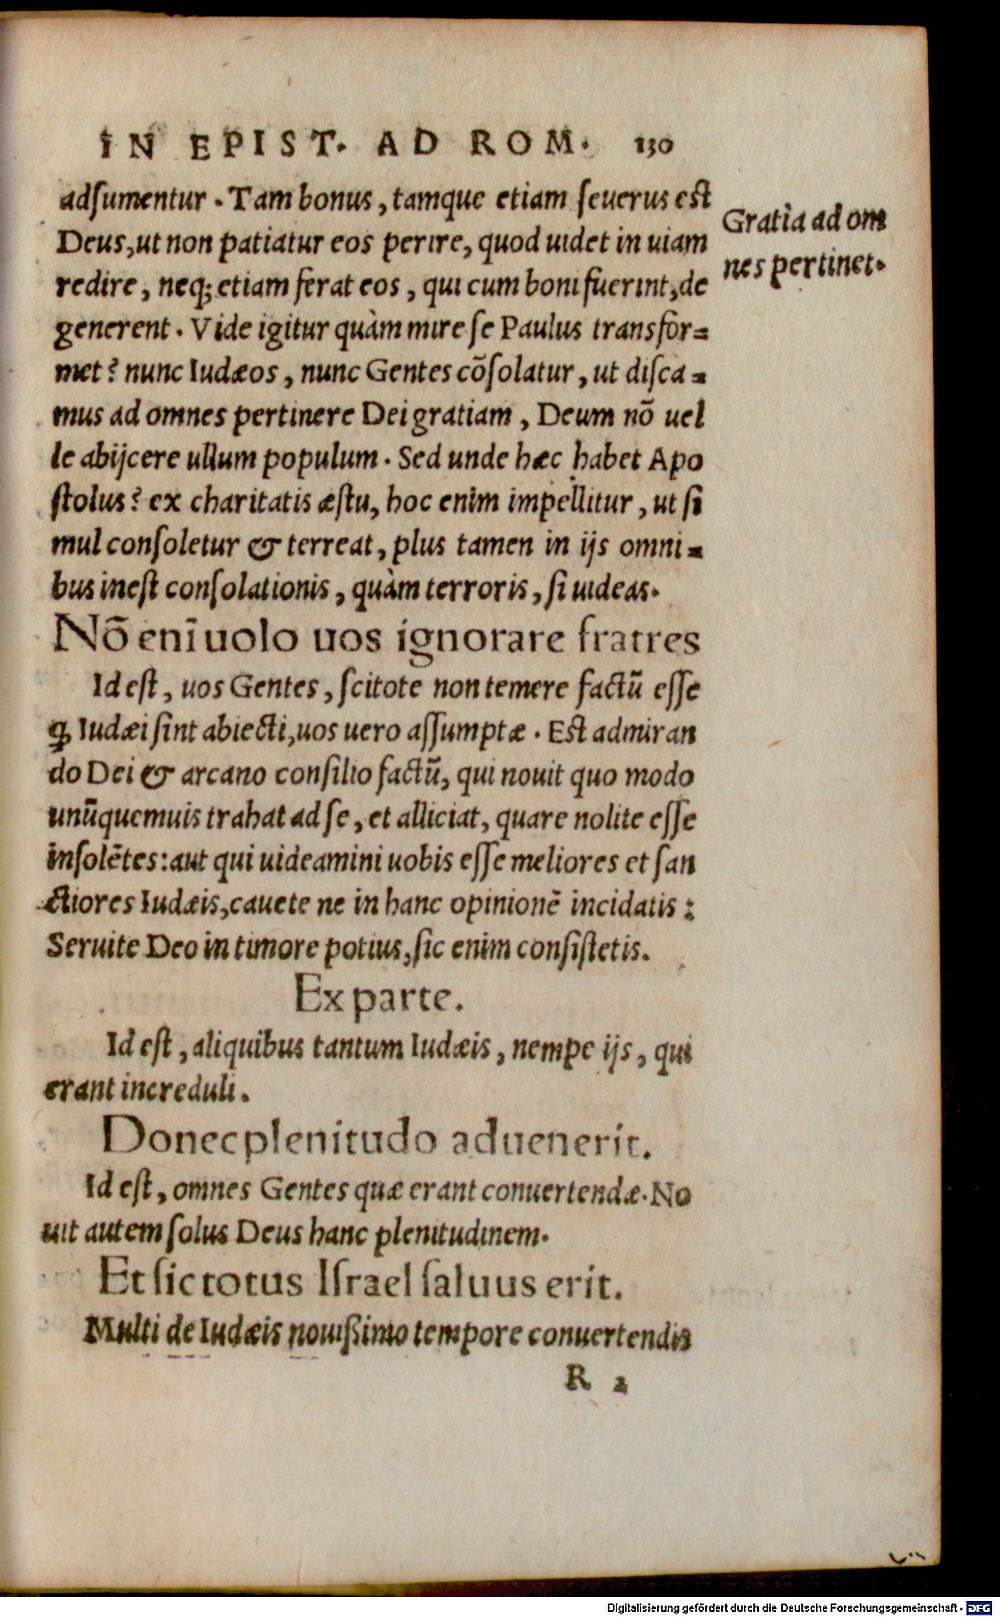 IN EPIST. AD ROM. 130
adſumentur. Tam bonus, tamque etiam ſeuerus eſt
Deus, ut non patiatur eos perire, quod uidet in uiam
redire, neq; etiam ferat eos, qui cum boni fuerint, de
generent. Vide igitur quàm mire ſe Paulus transfor=
met? nunc Iudæos, nunc Gentes cõſolatur, ut diſca=
mus ad omnes pertinere Dei gratiam, Deum nõ uel
le abijcere ullum populum. Sed unde hæc habet Apo
ſtolus? ex charitatis æſtu, hoc enim impellitur, ut ſi
mul conſoletur & terreat, plus tamen in ijs omni=
bus ineſt conſolationis, quàm terroris, ſi uideas.
Gratia ad om
nes pertinet.
Nõ enĩ uolo uos ignorare fratres
Id eſt, uos Gentes, ſcitote non temere factũ eſſe
ꝙ Iudæi ſint abiecti, uos uero aſſumptæ. Eſt admiran
do Dei & arcano conſilio factũ, qui nouit quo modo
unũquemuis trahat ad ſe, et alliciat, quare nolite eſſe
inſolẽtes: aut qui uideamini uobis eſſe meliores et ſan
ctiores Iudæis, cauete ne in hanc opinionẽ incidatis:
Seruite Deo in timore potius, ſic enim conſiſtetis.
Ex parte.
Id eſt, aliquibus tantum Iudæis, nempe ijs, qui
erant increduli.
Donec plenitudo aduenerit.
Id eſt, omnes Gentes quæ erant conuertendæ. No
uit autem ſolus Deus hanc plenitudinem.
Et ſic totus Iſrael ſaluus erit.
Multi de Iudæis nouißimo tempore conuertendi
R 2
Digitalisierung gefördert durch die Deutsche Forschungsgemeinschaft - DFG